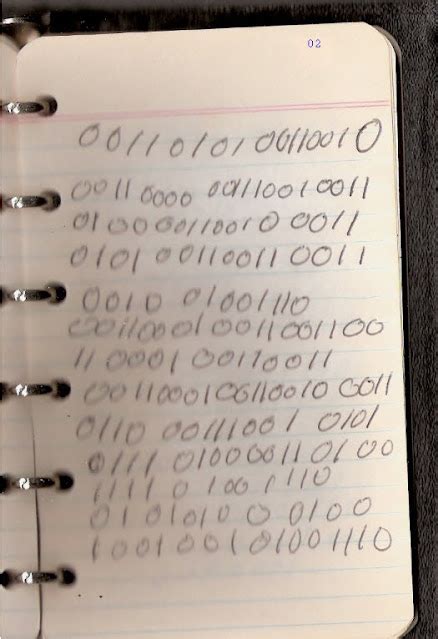 02
00110101 00110010
0011 0000 001110010011
010000110010 0011
0101 00110011 0011
0010 01001110
000110001 0011001100
110001 00110011
0011000100110010 0011
0110 00111001 0101
0111 010000110100
1111 01001110
01010100 0100
100100101001110